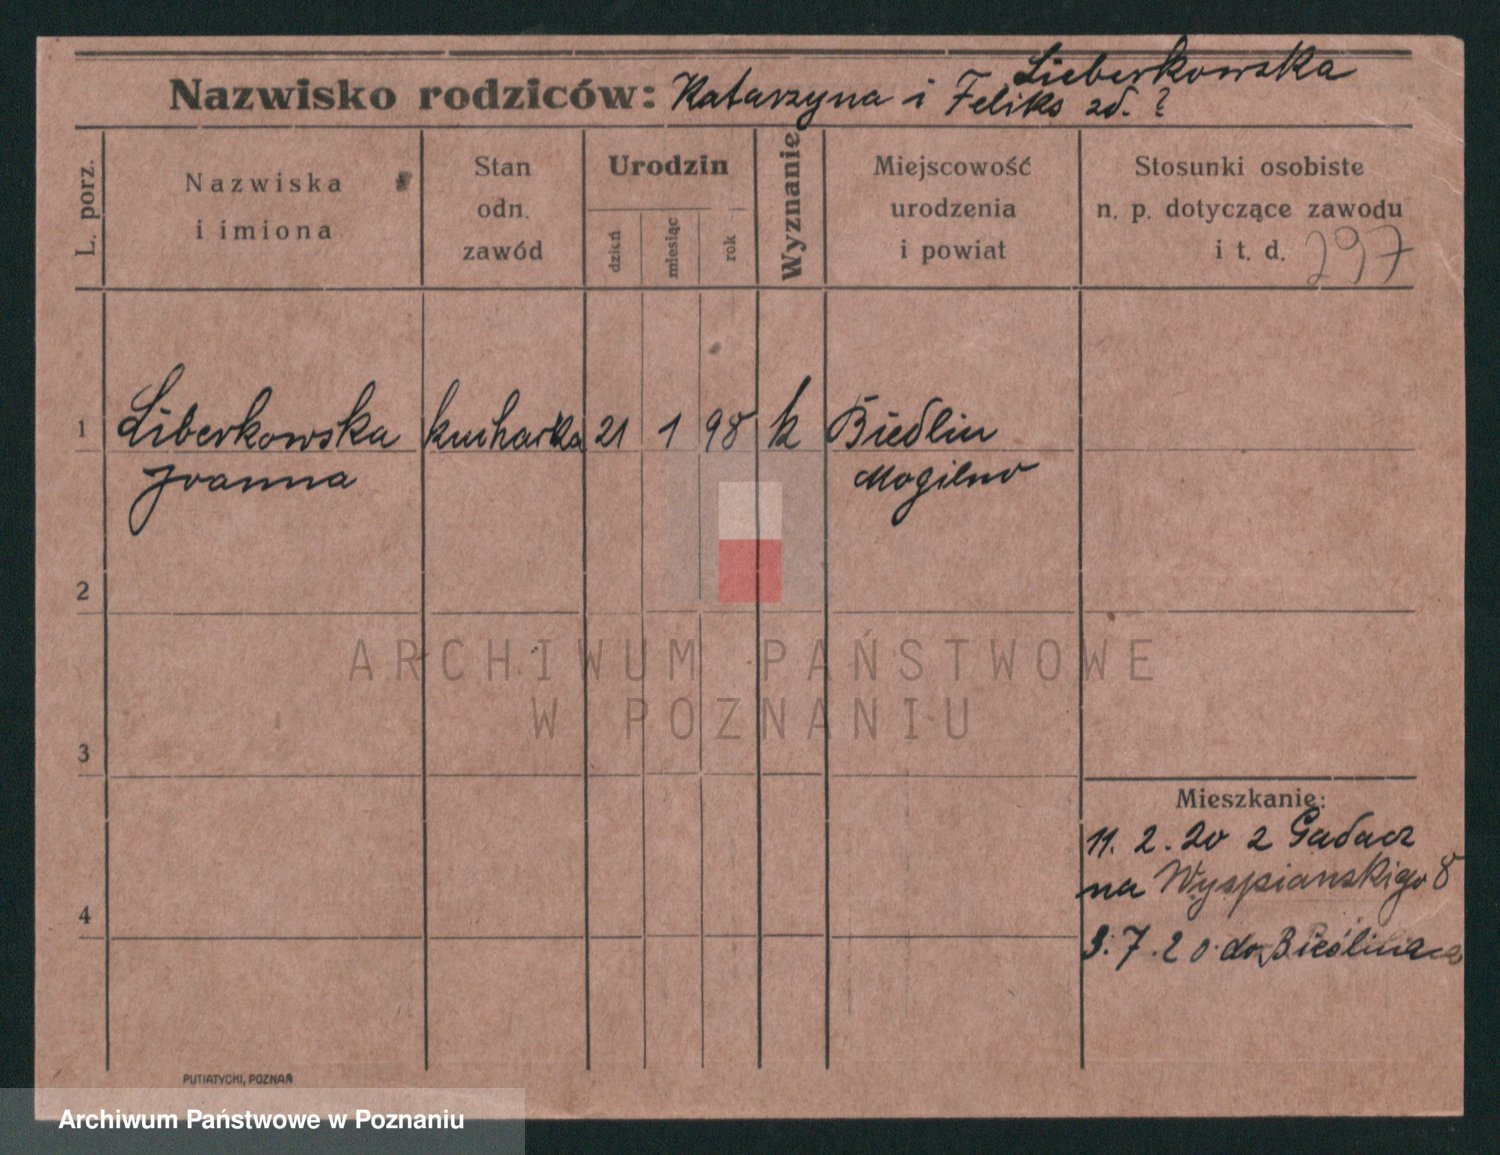 Lieberkowska
Nazwisko rodziców: Katarzyna i Feliks zd. ?
L. porz.
Nazwiska
i imiona
Stan
odn.
zawód
Urodzin
dzień
miesiąc
rok
Wyznanie
Miejscowość
urodzenia
i powiat
Stosunki osobiste
n. p. dotyczące zawodu
i t. d. 297
1 Liberkowska kucharka 21 1 98 k Biedlin
Joanna Mogilno
2
3
4
ARCHIWUM PAŃSTWOWE
W POZNANIU
Mieszkanie:
11. 2. 20 z Gadacz
na Wyspianskigo 8
3. 7. 20 do
PUTIATYCKI, POZNAŃ
Archiwum Państwowe w Poznaniu